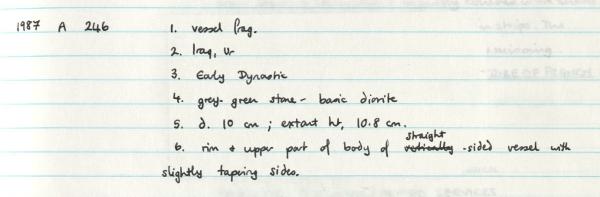 1987 A 246 1. vessel frag.
2. Iraq, Ur
3. Early Dynastic
4. grey-green stone - basic diorite
5. d. 10 cm ; extant ht, 10.8 cm.
straight
6. rim + upper part of body of vertically -sided vessel with
slightly tapering sides.